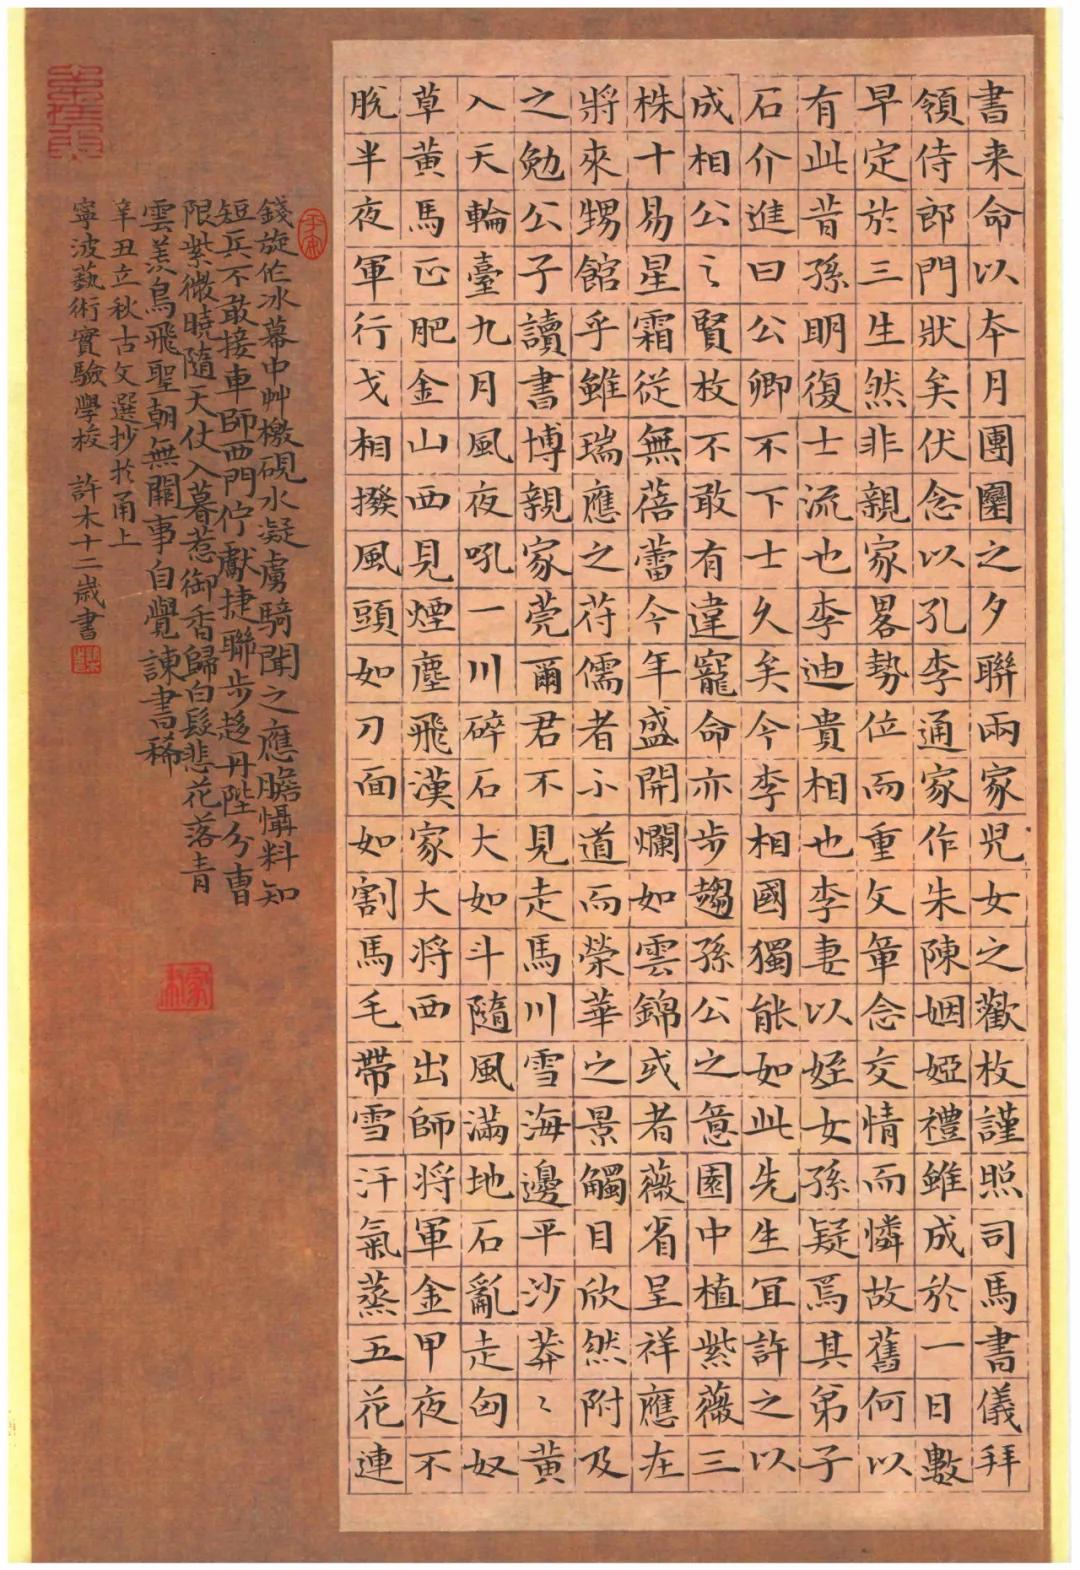 書来命以本月團圞之夕聯兩家児女之歡枚謹照司馬書儀拜
領侍郎門狀矣伏念以孔李通家作朱陳姻婭禮雖成於一日數
早定於三生然非親家畧勢位而重文章念交情而憐故舊何以
有此昔孫明復士流也李迪貴相也李妻以姪女孫疑焉其弟子
石介進曰公卿不下士久矣今李相國獨能如此先生宜許之以
成相公〻賢枚不敢有違寵命亦步趨孫公之意園中植紫薇三
株十易星霜従無蓓蕾今年盛開爛如雲錦或者薇省呈祥應在
將來甥館乎雖瑞應之苻儒者不道而榮華之景觸目欣然附及
之勉公子讀書博親家莞爾君不見走馬川雪海邊平沙莽〻黄
入天輪臺九月風夜吼一川碎石大如斗隨風滿地石亂走匈奴
草黄馬正肥金山西見煙塵飛漢家大将西出師将軍金甲夜不
脫半夜軍行戈相撥風頭如刀面如割馬毛帶雪汗氣蒸五花連
錢旋作冰幕中艸檄硯水凝虜騎聞之應膽懾料知
短兵不敢接車師西門佇獻捷聯步趍丹陛分曹
限紫微曉隨天仗入暮惹御香歸白髮悲花落青
雲羨鳥飛聖朝無闕事自覺諫書稀
辛丑立秋古文選抄於甬上
寧波藝術實驗學校 許木十二歲書